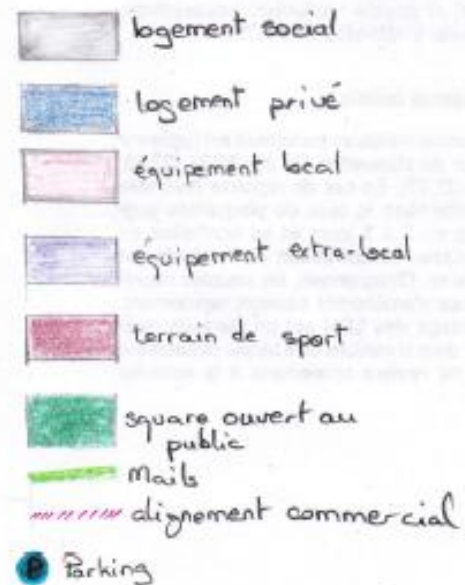 logement social
logement privé
équipement local
équipement extra-local
terrain de sport
square ouvert au
public
Mails
alignement commercial
P Parking